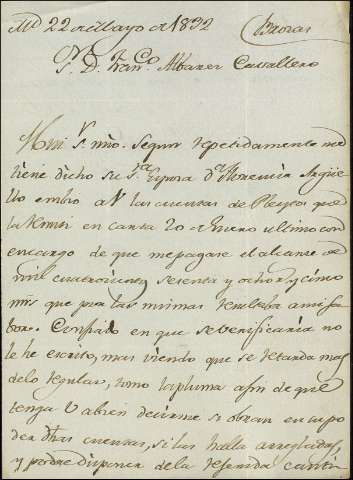 Md 22 de Mayo de 1832
Sr. D. Franco. Albaner Cavallero
Mui Sr. mio. Segun repetidamente me
tiene dicho su Sra. Esposa Da. Florencia Argüe
llo embio a V. las cuentas de Pleytos que
la remiti en carta 20 de Enero ultimo con
encargo de que me pagase el alcance de
mil cuatrocientos sesenta y ocho rs y cinco
mrs que por las mismas resultaba a mi fa
bor. Confiado en que se verificaria no
le he escrito, mas viendo que se retarda mas
de lo regular, tomo la pluma a fin de que
tenga V. a bien decirme si obran en su po
der dhas cuentas, si las halla arregladas,
y podre disponer de la referida canti